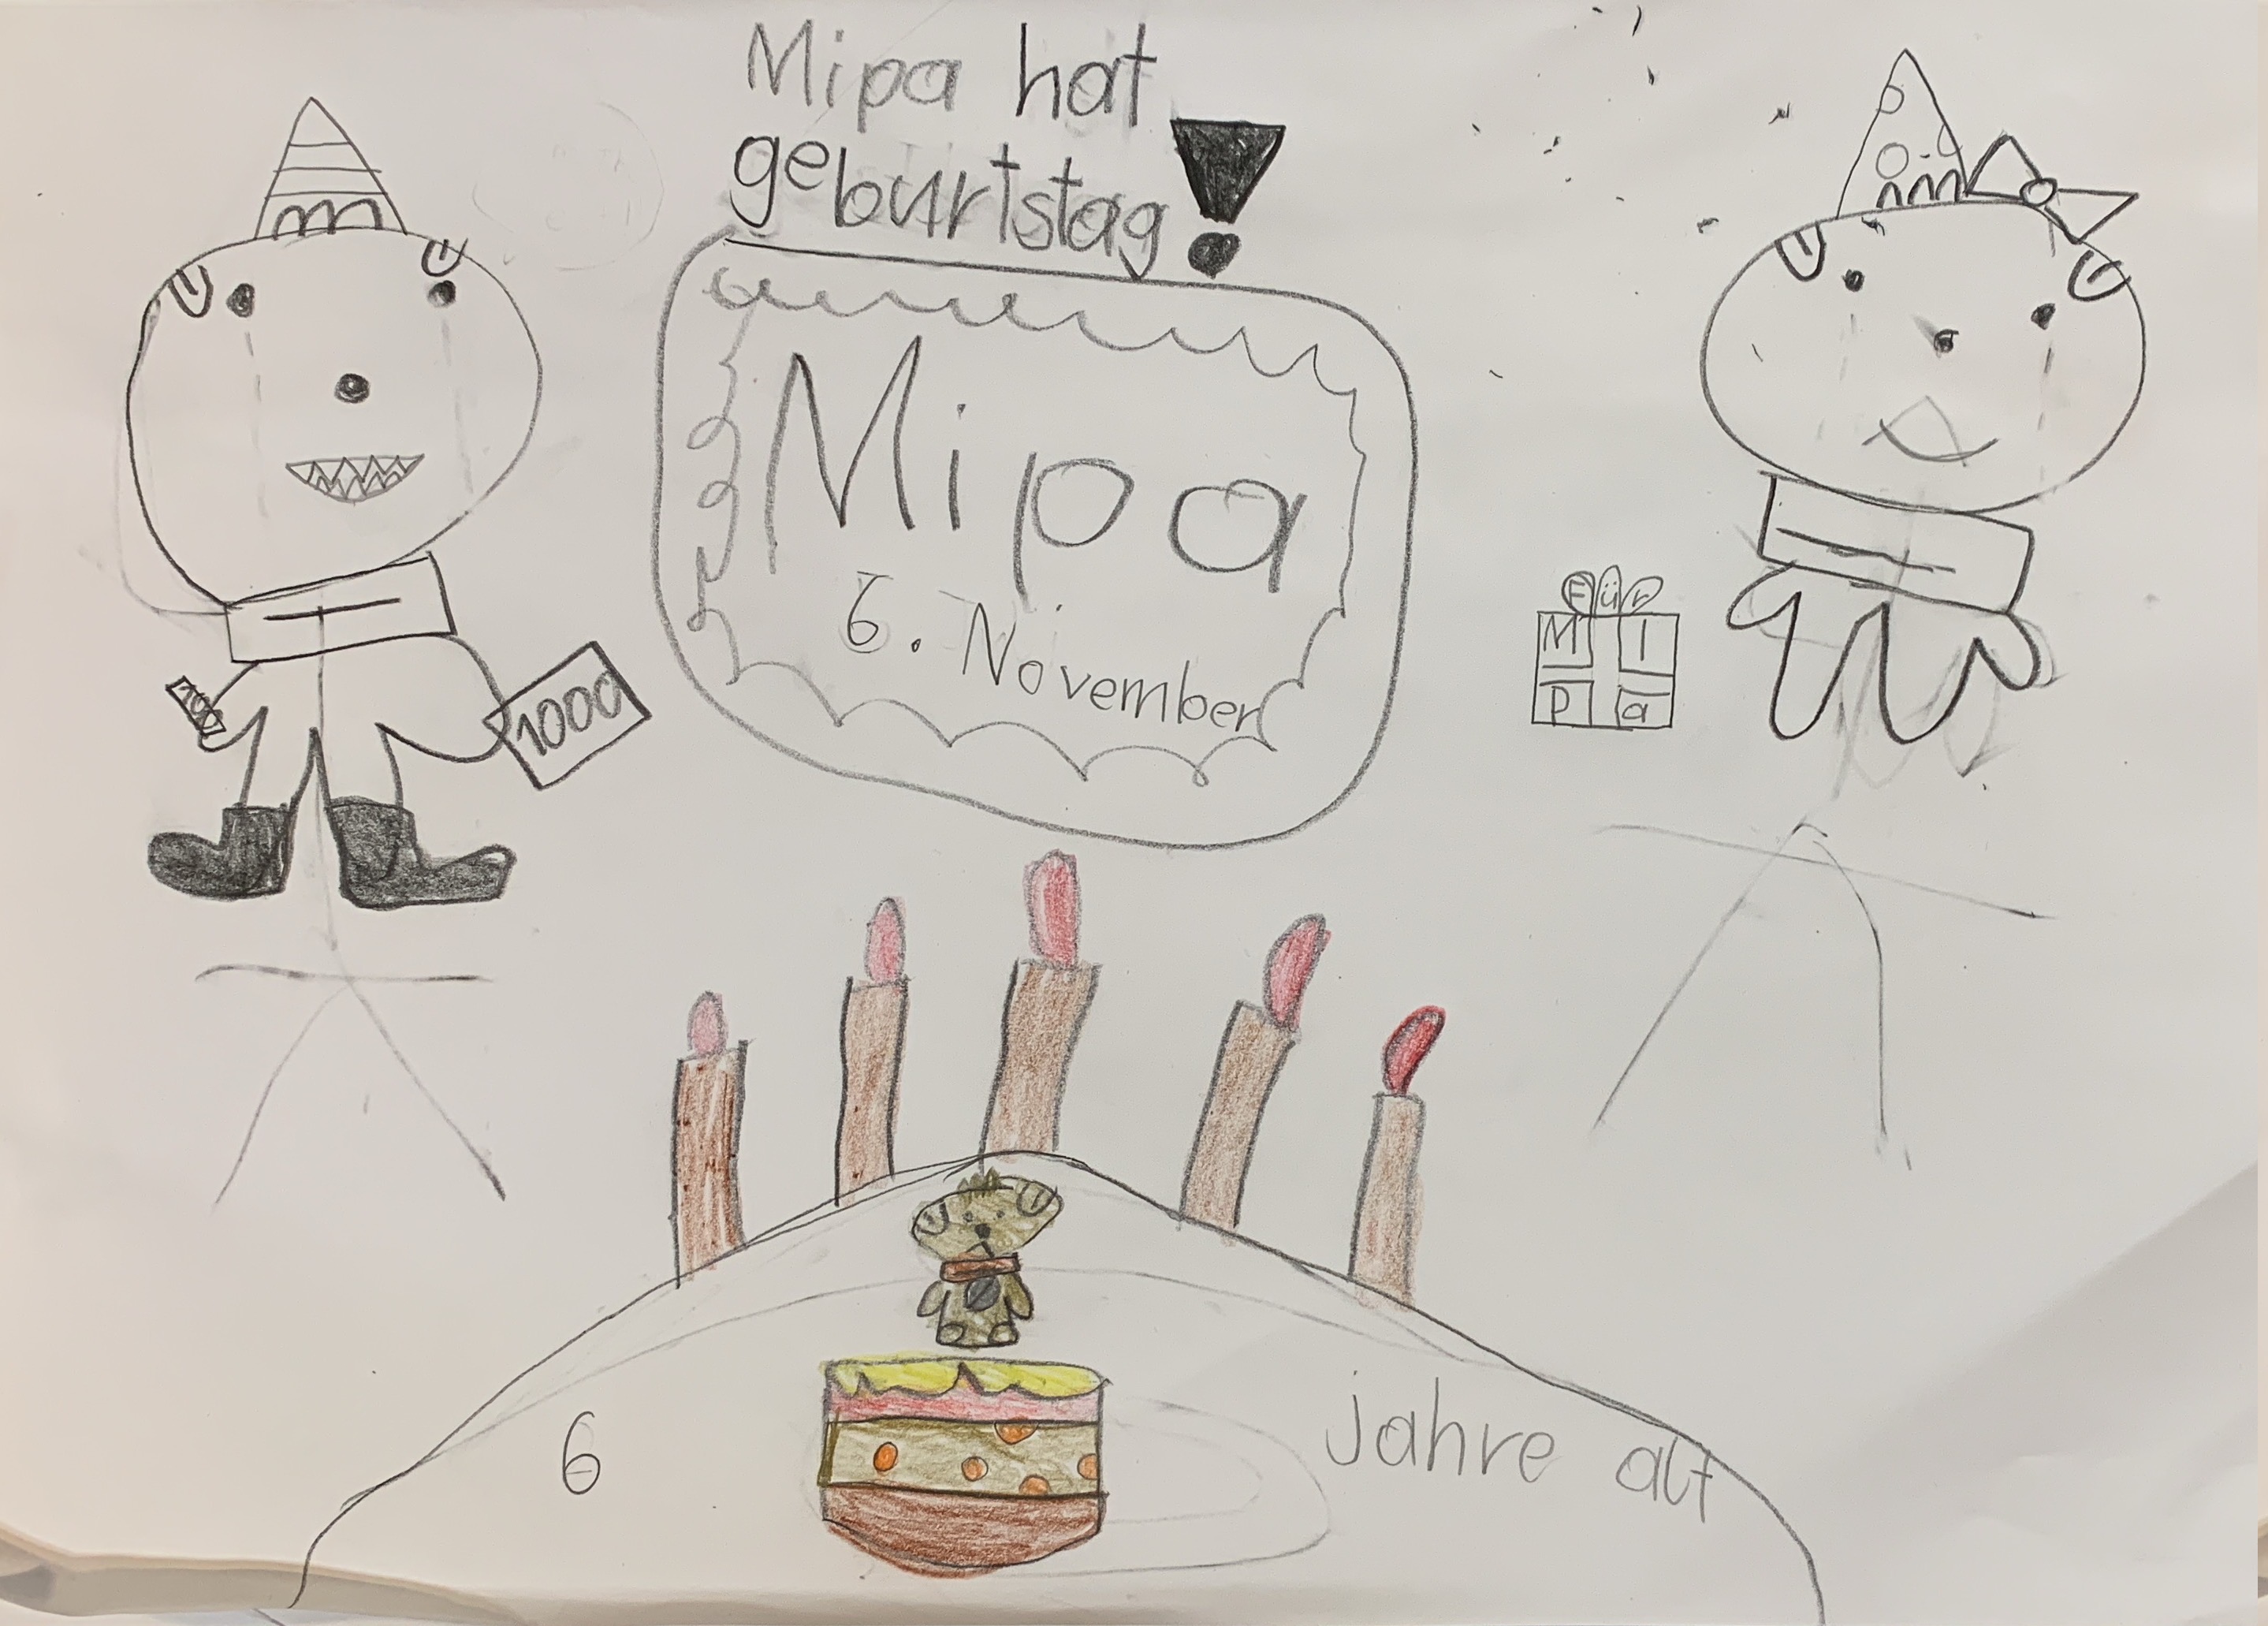 Mipa hat
geburtstag!
Mipa
6. November
100
1000
Für
MI
Pa
6 jahre alt